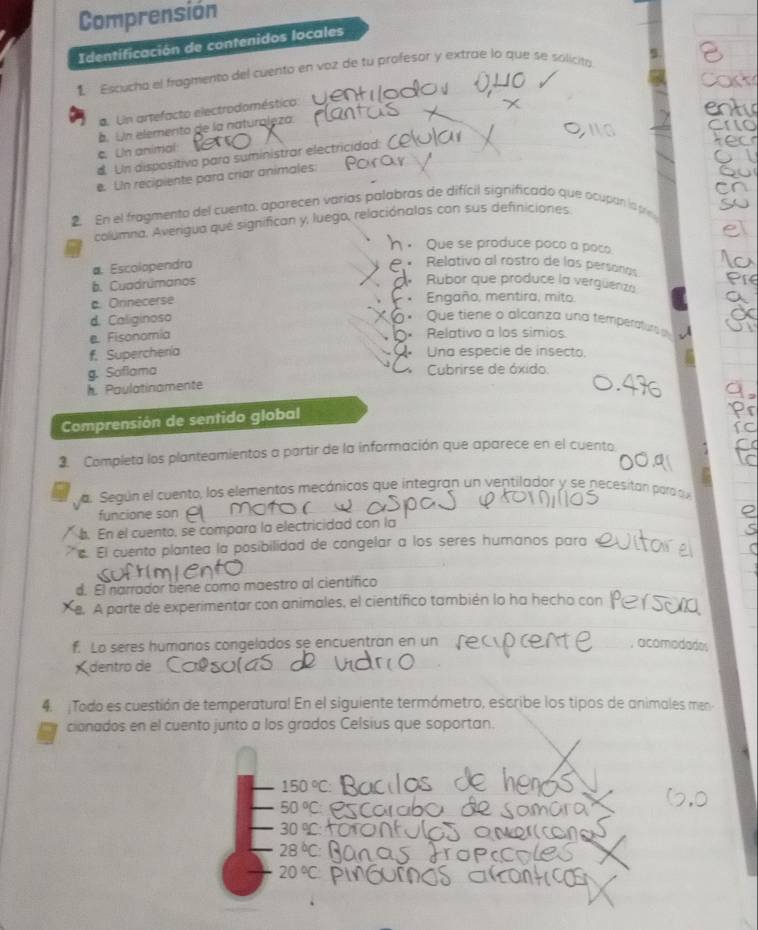 Comprensión
Identificación de contenidos locales
1. Escucha el fragmento del cuento en voz de tu profesor y extrae lo que se solicita.
a. Un artefacto electrodoméstico: ventilador 0,40 ✓
b. Un elemento de la naturaleza: plantas X
c. Un animal: Perro X
d. Un dispositivo para suministrar electricidad: celular X
e. Un recipiente para criar animales:
2. En el fragmento del cuento, aparecen varias palabras de difícil significado que ocupan la
columna. Averigua qué significan y, luego, relaciónalas con sus definiciones.
h. Que se produce poco a poco.
a. Escolopendra
e. Relativo al rostro de las personas
b. Cuadrúmanos
d. Rubor que produce la vergüenza
c. Orinecerse
f. Engaño, mentira, mito.
d. Caliginoso
Que tiene o alcanza una temperatura
e. Fisonomía
b. Relativo a los simios.
f. Superchería
a. Una especie de insecto.
g. Soflama
c. Cubrirse de óxido.
h. Paulatinamente
0.476
Comprensión de sentido global
3. Completa los planteamientos a partir de la información que aparece en el cuento.
a. Según el cuento, los elementos mecánicos que integran un ventilador y se necesitan para que
funcione son el motor aspas tornillos
b. En el cuento, se compara la electricidad con la
c. El cuento plantea la posibilidad de congelar a los seres humanos para evitar el
sufrimiento
d. El narrador tiene como maestro al científico
e. A parte de experimentar con animales, el científico también lo ha hecho con Persona
f. Lo seres humanos congelados se encuentran en un recipcente , acomodados
dentro de Capsulas de vidrio .
4. ¡Todo es cuestión de temperatura! En el siguiente termómetro, escribe los tipos de animales men-
cionados en el cuento junto a los grados Celsius que soportan.
150 °C: Bacilos de henos
50 °C: escaraba de samara X
0.0
30 °C: tarantulas americanas
28 °C: Ranas tropicoles X
20 °C: pinguinos